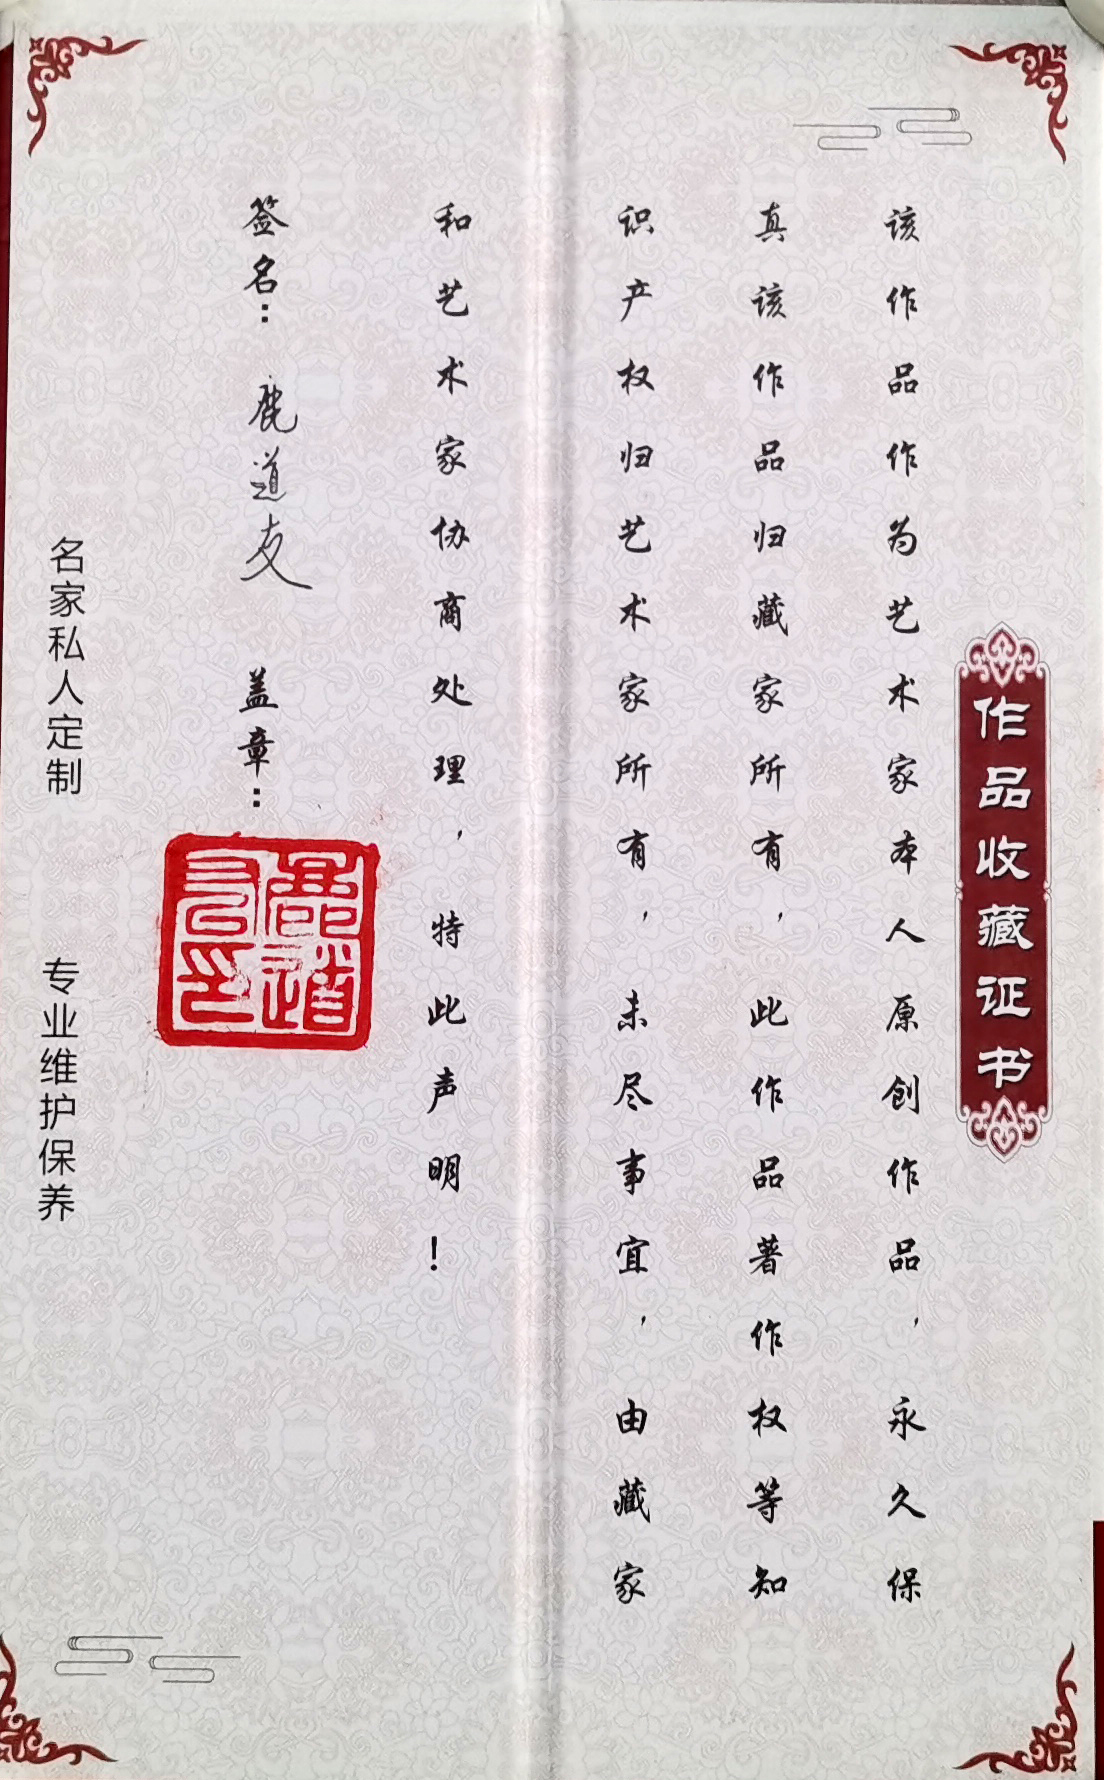 作品收藏证书
该作品作为艺术家本人原创作品，永久保
真该作品归藏家所有，此作品著作权等知
识产权归艺术家所有，未尽事宜，由藏家
和艺术家协商处理，特此声明！
签名：鹿道友 盖章：
鹿道
友印
名家私人定制 专业维护保养